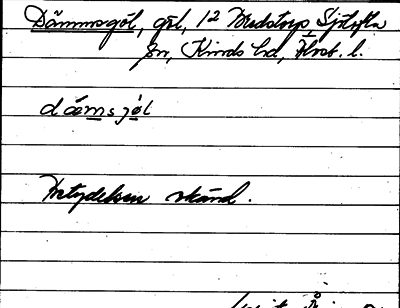 Dämmsgöl, göl, 12 Bredstorp Sjötofta
sn, Kinds hd, Älvsb. l.
dæmsjöl
Betydelsen okänd.